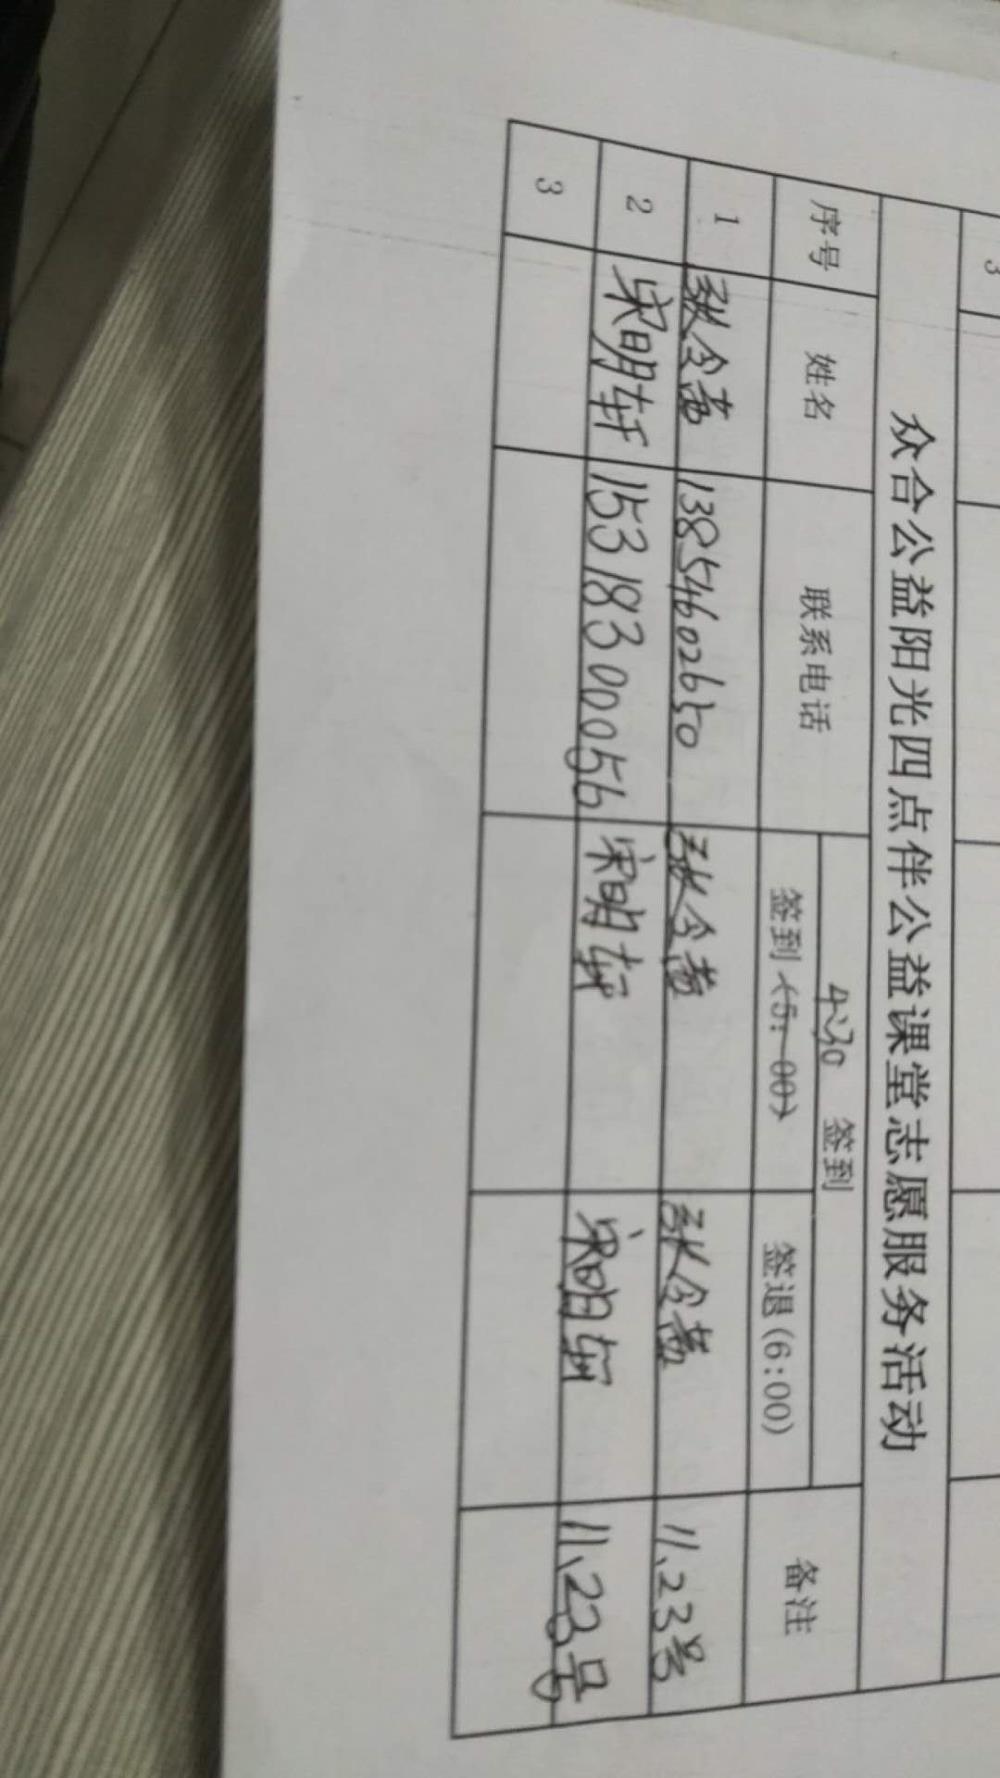 3
众合公益阳光四点伴公益课堂志愿服务活动
序号 姓名 联系电话 4:30 签到 备注
签到(5:00) 签退(6:00)
1 张令茜 13854602650 张令茜 张令茜 11.23号
2 宋明轩 15318300056 宋明轩 宋明轩 11.23号
3